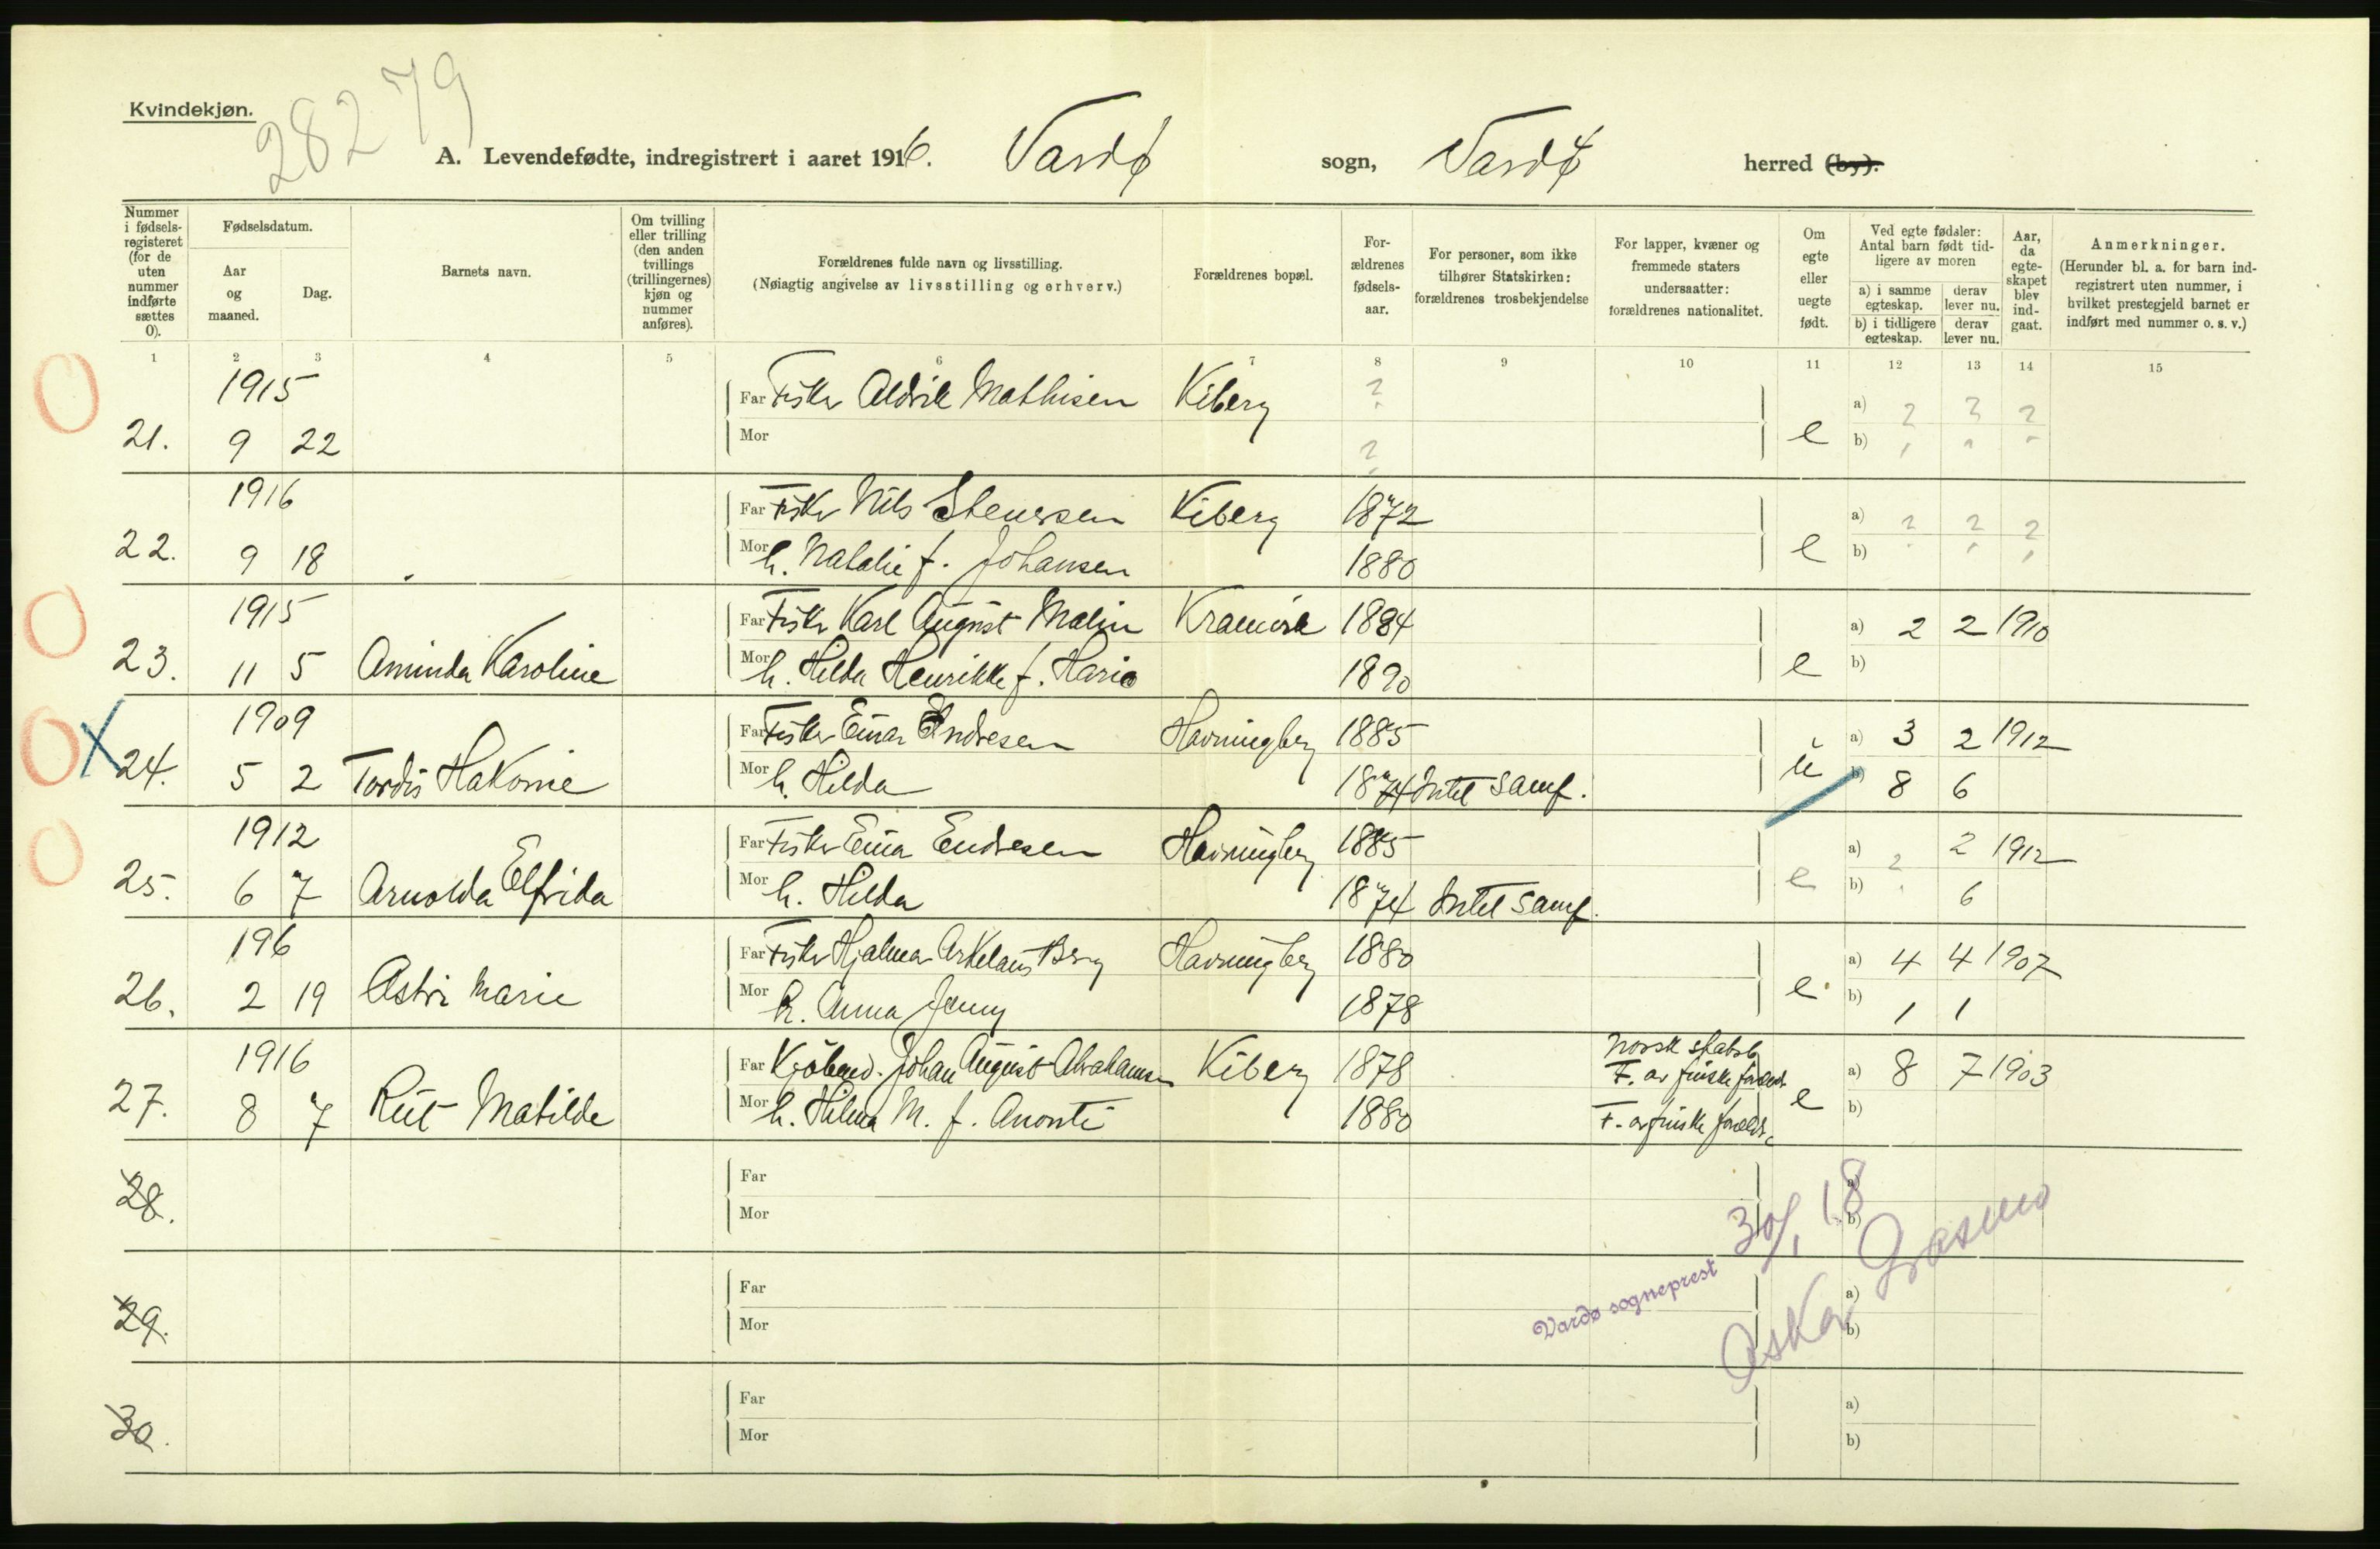 Kvindekjøn.
28279
A. Levendefødte, indregistrert i aaret 1916. Vardø sogn, Vardø herred (by).
Nummer i fødsels-registeret (for de uten nummer indførte sættes 0).
Fødselsdatum.
Aar og maaned.
Dag.
Barnets navn.
Om tvilling eller trilling (den anden tvillings (trillingernes) kjøn og nummer anføres).
Forældrenes fulde navn og livsstilling.
(Nøiagtig angivelse av livsstilling og erhverv.)
Forældrenes bopæl.
For-ældrenes fødsels-aar.
For personer, som ikke tilhører Statskirken: forældrenes trosbekjendelse
For lapper, kvæner og fremmede staters undersaatter: forældrenes nationalitet.
Om egte eller uegte født.
Ved egte fødsler: Antal barn født tid-ligere av moren
a) i samme egteskap.
derav lever nu.
b) i tidligere egteskap.
derav lever nu.
Aar, da egte-skapet blev ind-gaat.
Anmerkninger.
(Herunder bl. a. for barn ind-registrert uten nummer, i hvilket prestegjeld barnet er indført med nummer o. s. v.)
1 2 3 4 5 6 7 8 9 10 11 12 13 14 15
1915 Far Fisker Aldrik Mathisen Kiberg ? a) ? ? ?
21. 9 22 Mor ? e b)
1916 Far Fisker Nils Steversen Kiberg 1872 a) ? ? ?
22. 9 18 Mor h. Natalie f. Johansen 1880 e b)
1915 Far Fisker Karl August Malin Kramvik 1884 a) 2 2 1910
23. 11 5 Aminda Karoline Mor h. Hilda Henrikke f. Hario 1890 e b)
1909 Far Fisker Einar Endresen Havningberg 1885 a) 3 2 1912
24. 5 2 Tordis Hakonie Mor h. Hilda 1874 Intet samf. u b) 8 6
1912 Far Fisker Einar Endresen Havningberg 1885 a) ? 2 1912
25. 6 7 Arnolda Elfrida Mor h. Hilda 1874 Intet samf. e b) 6
196 Far Fisker Hjalmar Arkelaus Berg Havningberg 1880 a) 4 4 1907
26. 2 19 Astri Marie Mor h. Anna Jenny 1878 e b) 1 1
1916 Far Kjøbmd. Johan August Abrahamsen Kiberg 1878 Norsk statsb. F. av finske foreldr. a) 8 7 1903
27. 8 7 Rut Matilde Mor h. Hilma M. f. Anonti 1880 F. av finske foreldr. e b)
28. Far a)
Mor b)
30/1 18
29. Far a)
Mor b)
Vardø sogneprest
Askar Grasmo
30. Far a)
Mor b)